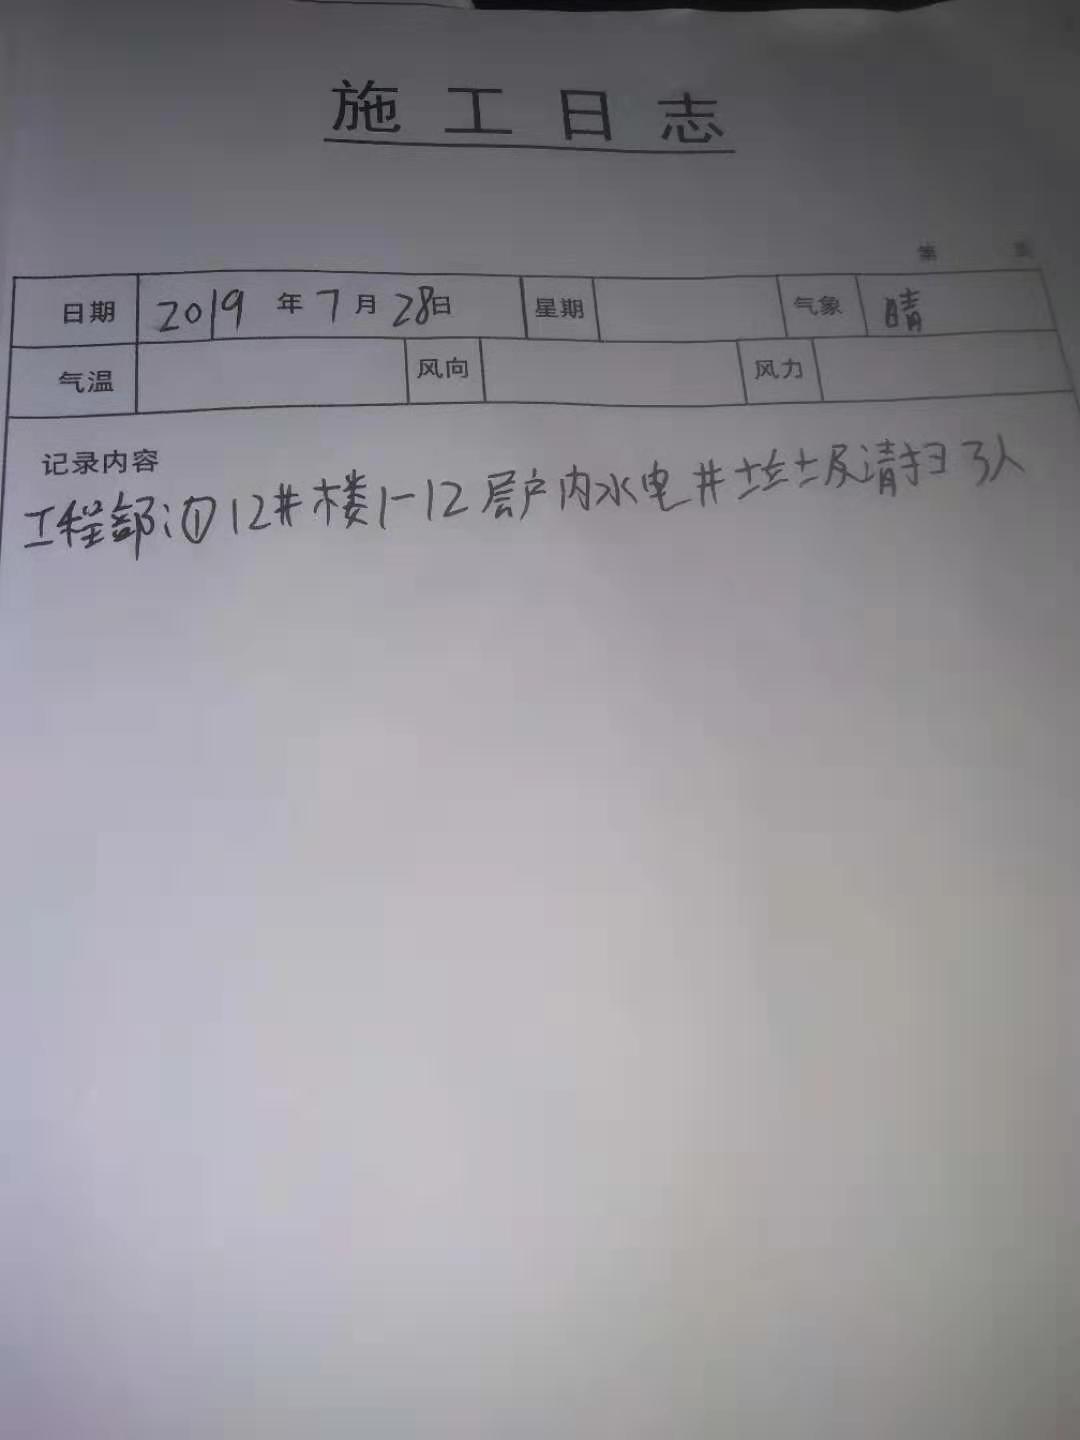 施工日志
第 页
日期 2019 年 7 月 28日 星期 气象 晴
气温 风向 风力
记录内容
工程部:①12#楼1-12层户内水电井垃圾清扫3人